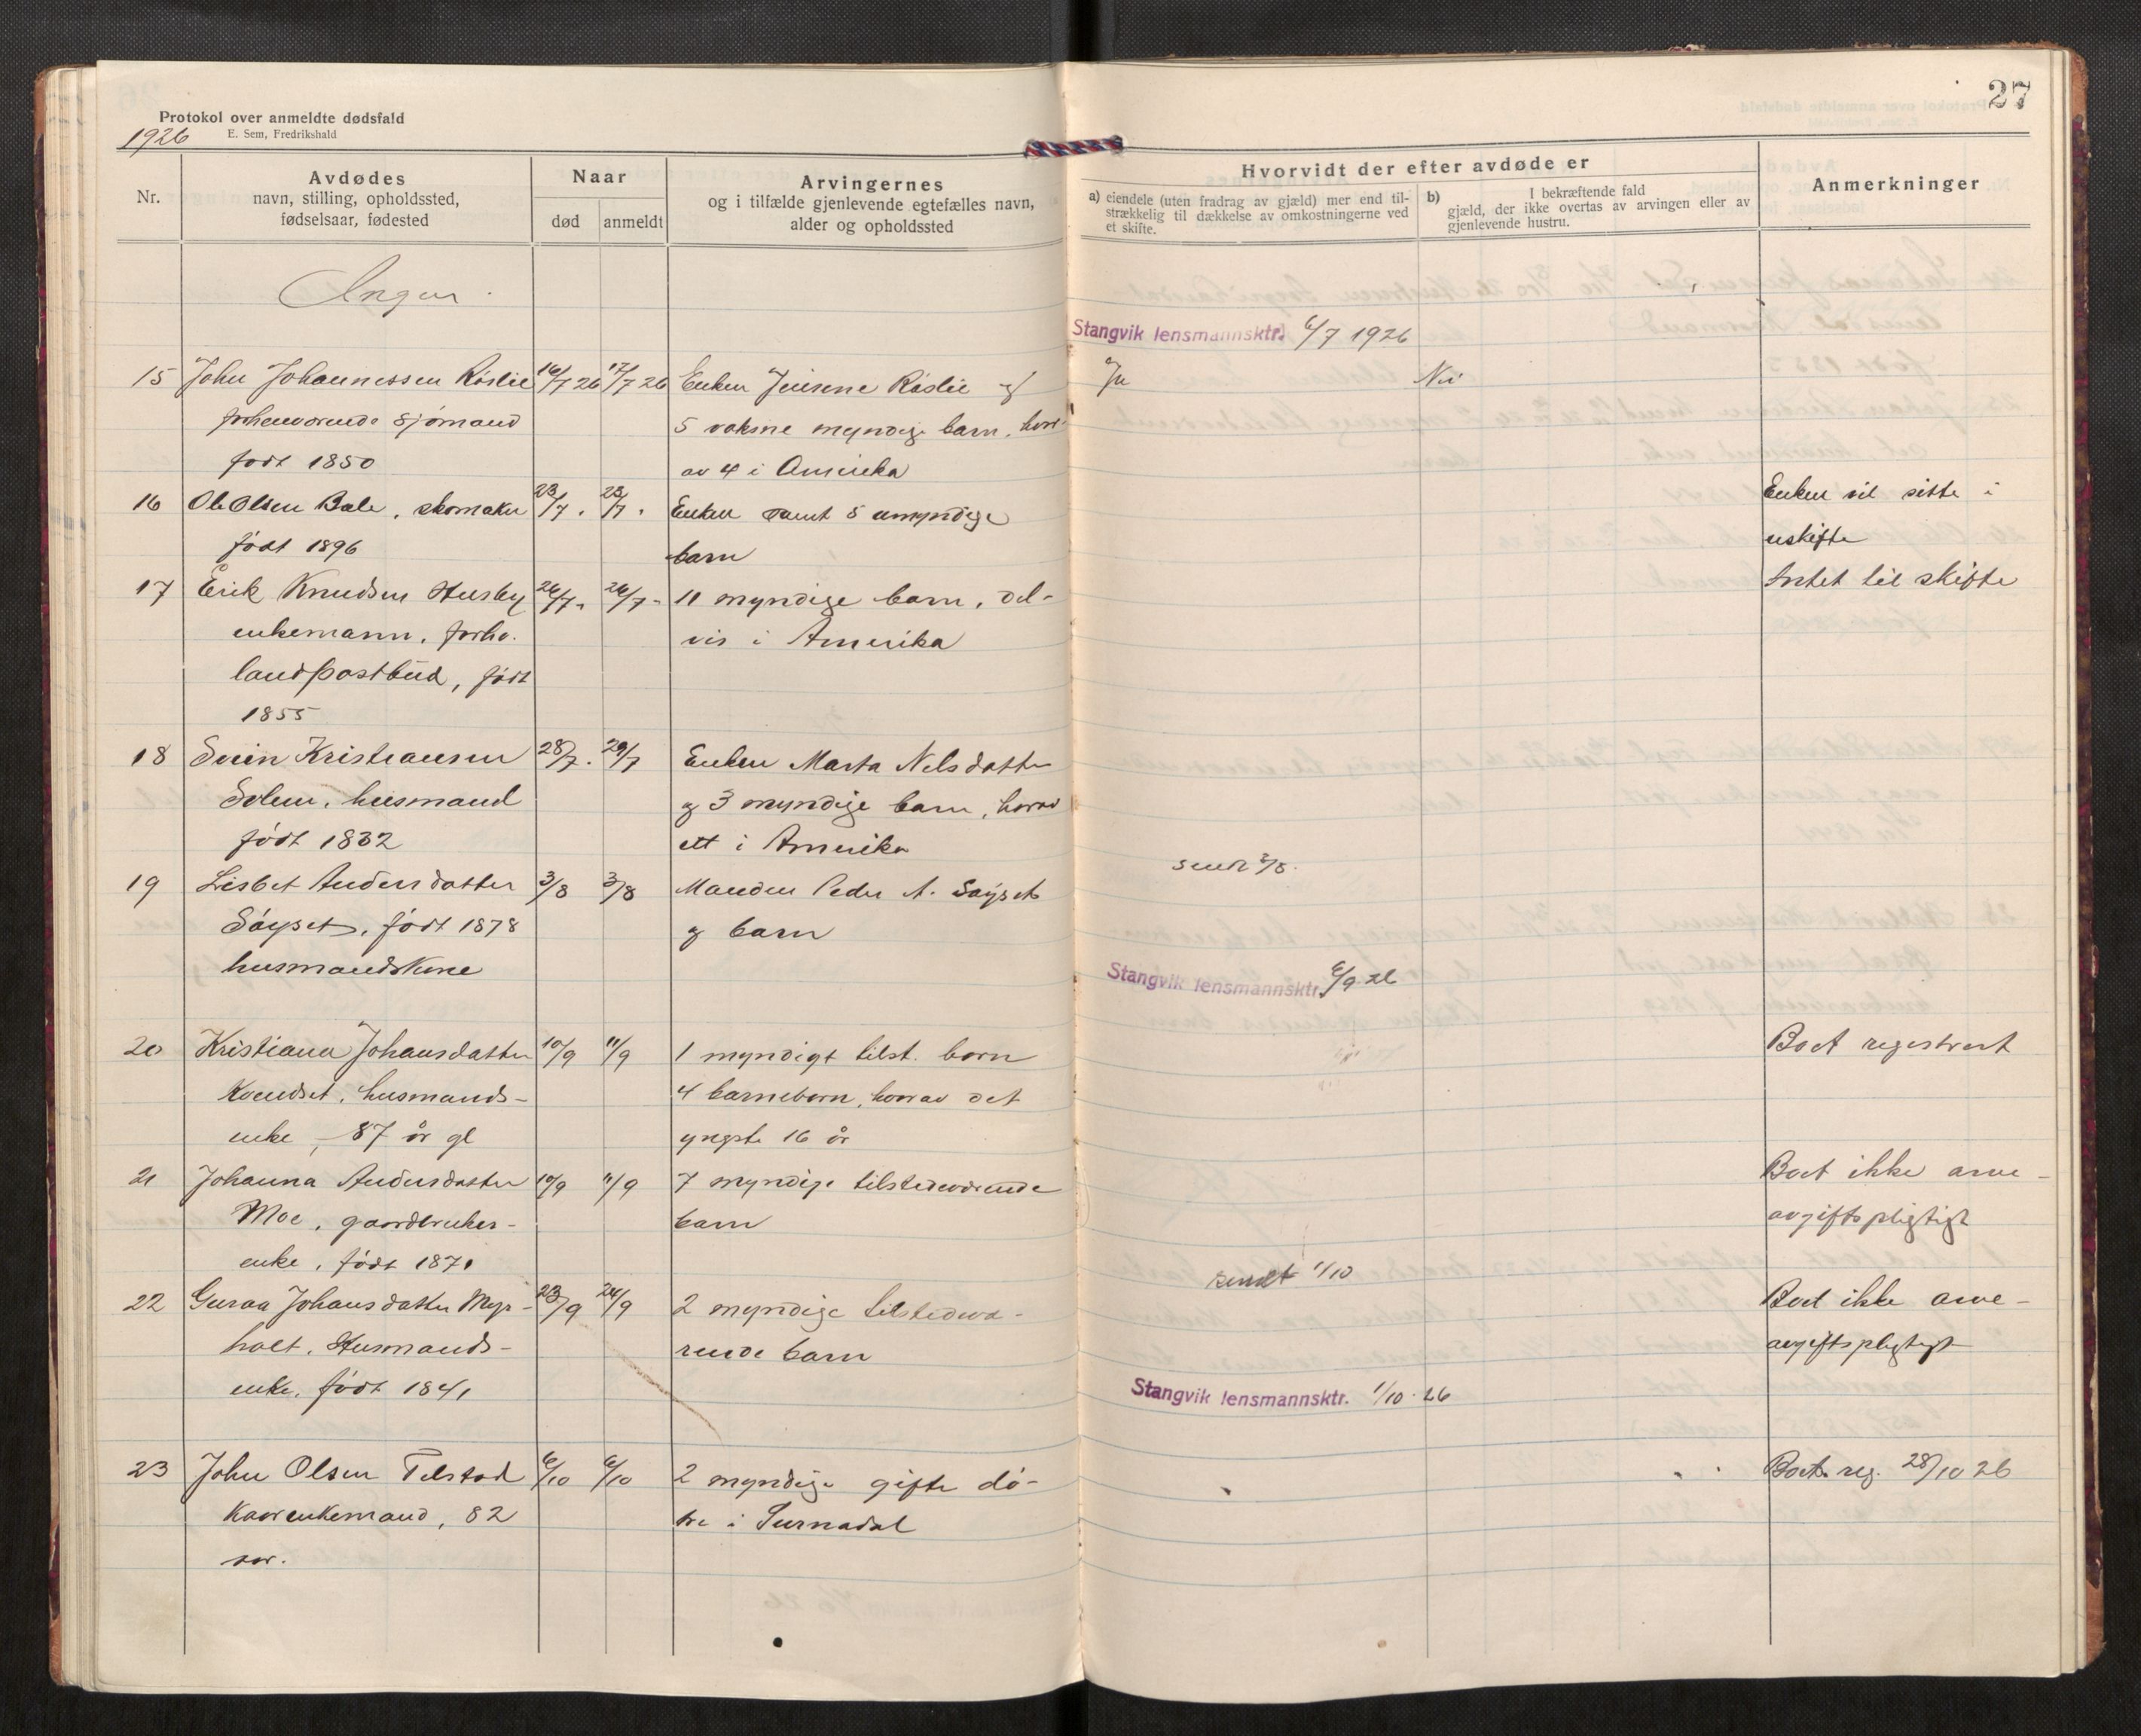 27
Protokol over anmeldte dødsfald
E. Sem, Fredrikshald
1926
Nr.
Avdødes
navn, stilling, opholdssted,
fødselsaar, fødested
Naar
død
anmeldt
Arvingernes
og i tilfælde gjenlevende egtefælles navn,
alder og opholdssted
Hvorvidt der efter avdøde er
a) eiendele (uten fradrag av gjæld) mer end til-
strækkelig til dækkelse av omkostningerne ved
et skifte.
b) I bekræftende fald
gjæld, der ikke overtas av arvingen eller av
gjenlevende hustru.
Anmerkninger
Ingen.
Stangvik lensmannsktr. 6/7 1926
15 John Johannessen Røslie 16/7 26 17/7 26 Enken Røslie og Ja Nei
forhenværende sjømand 5 voksne myndige barn, hvor-
født 1850 av 4 i Amerika
16 Ole Olsen Bale, skomaker 23/7. 23/7. Enken samt 5 umyndige Enken vil sitte i
født 1896 barn uskifte
17 Erik Knudsen Husby 26/7. 26/7. 11 myndige barn, del- Intet til skifte
enkemann, forhv. vis i Amerika
landpostbud, født
1855
18 Svein Kristiansen 28/7. 29/7 Enken Marta Nelsdatter
Solem, husmand og 3 myndige barn, hvorav
født 1832 ett i Amerika
sendt 2/8.
19 Lisbet Andersdatter 3/8 3/8 Manden Peder A. Søyset
Søyset, født 1878 og barn
husmandskone
Stangvik lensmannsktr. 6/9 26
20 Kristiana Johansdatter 10/9 11/9 1 myndigt tilst. barn Boet registrert
Kvendset, husmands- 4 barnebarn, hvorav det
enke, 87 år gl yngste 16 år
21 Johanna Andersdatter 10/9 11/9 7 myndige tilstedeværende Boet ikke arve-
Moe, gaardbruker- barn avgiftspligtigt
enke, født 1871
sendt 1/10
22 Guraa Johansdatter Myr- 23/9 24/9 2 myndige tilstedevæ- Boet ikke arve-
holt, Husmands- rende barn avgiftspligtigt
enke, født 1841
Stangvik lensmannsktr. 1/10 26
23 John Olsen Telstad 6/10 6/10 2 myndige gifte dø- Boet reg. 28/10 26
Kaarenkemand, 82 tre i Surnadal
aar.